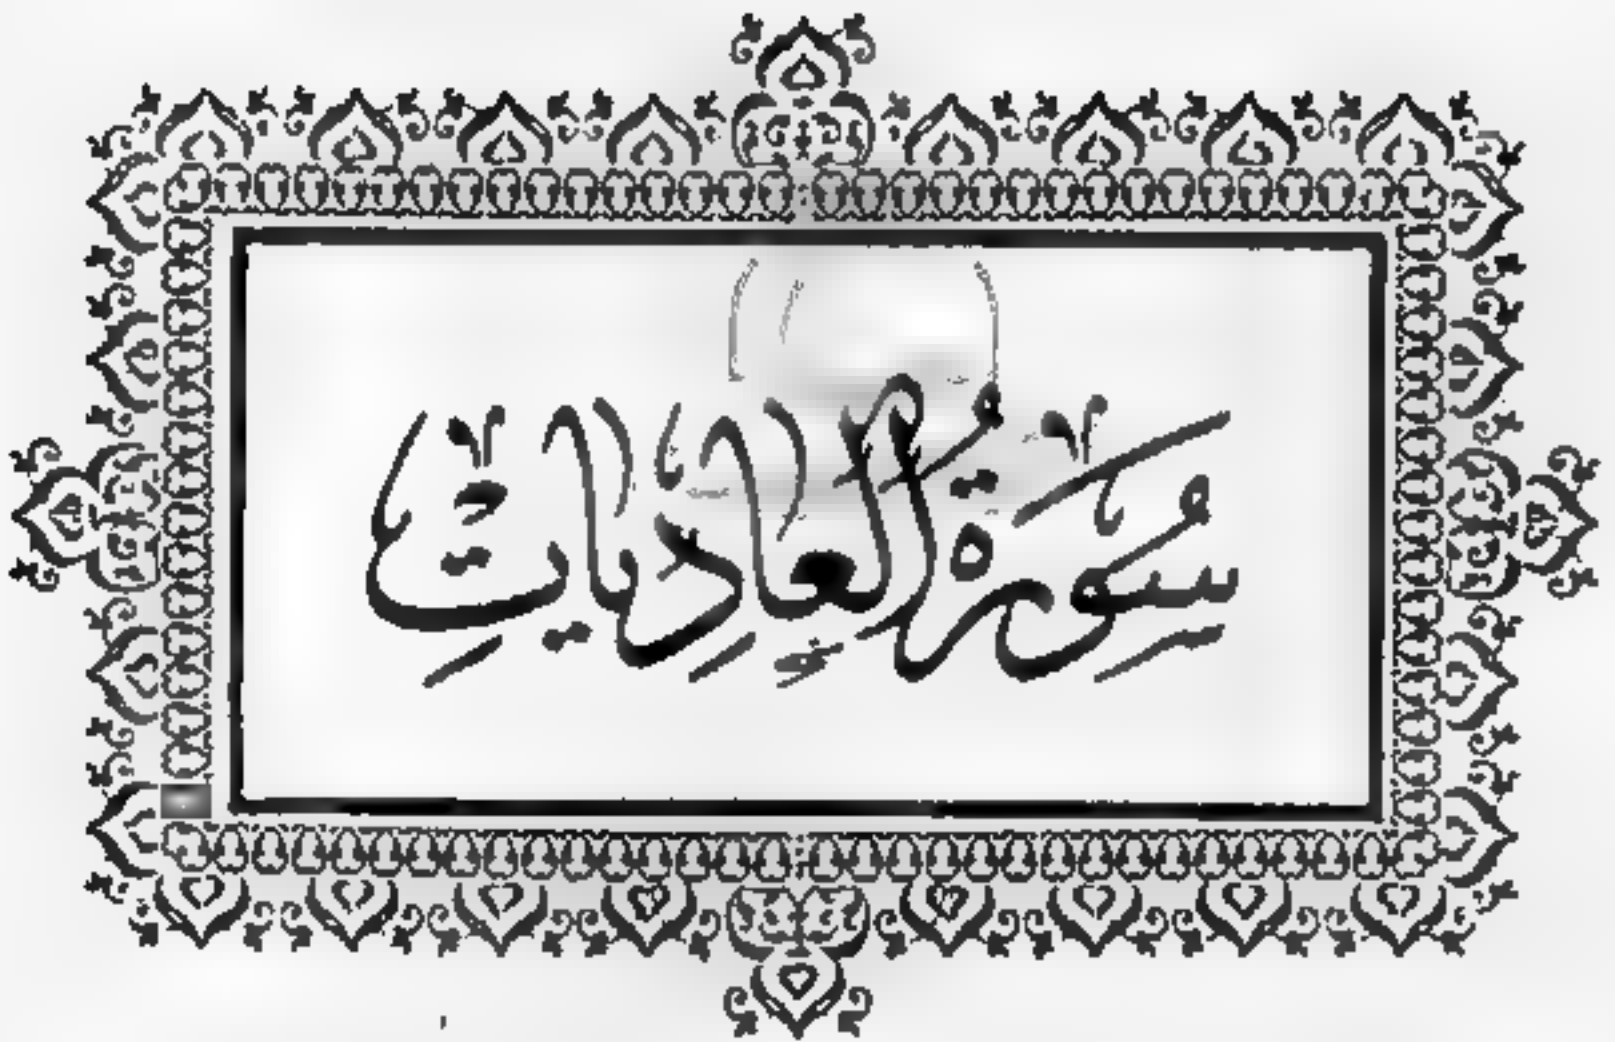 سُورَةُ العَادِيَاتِ